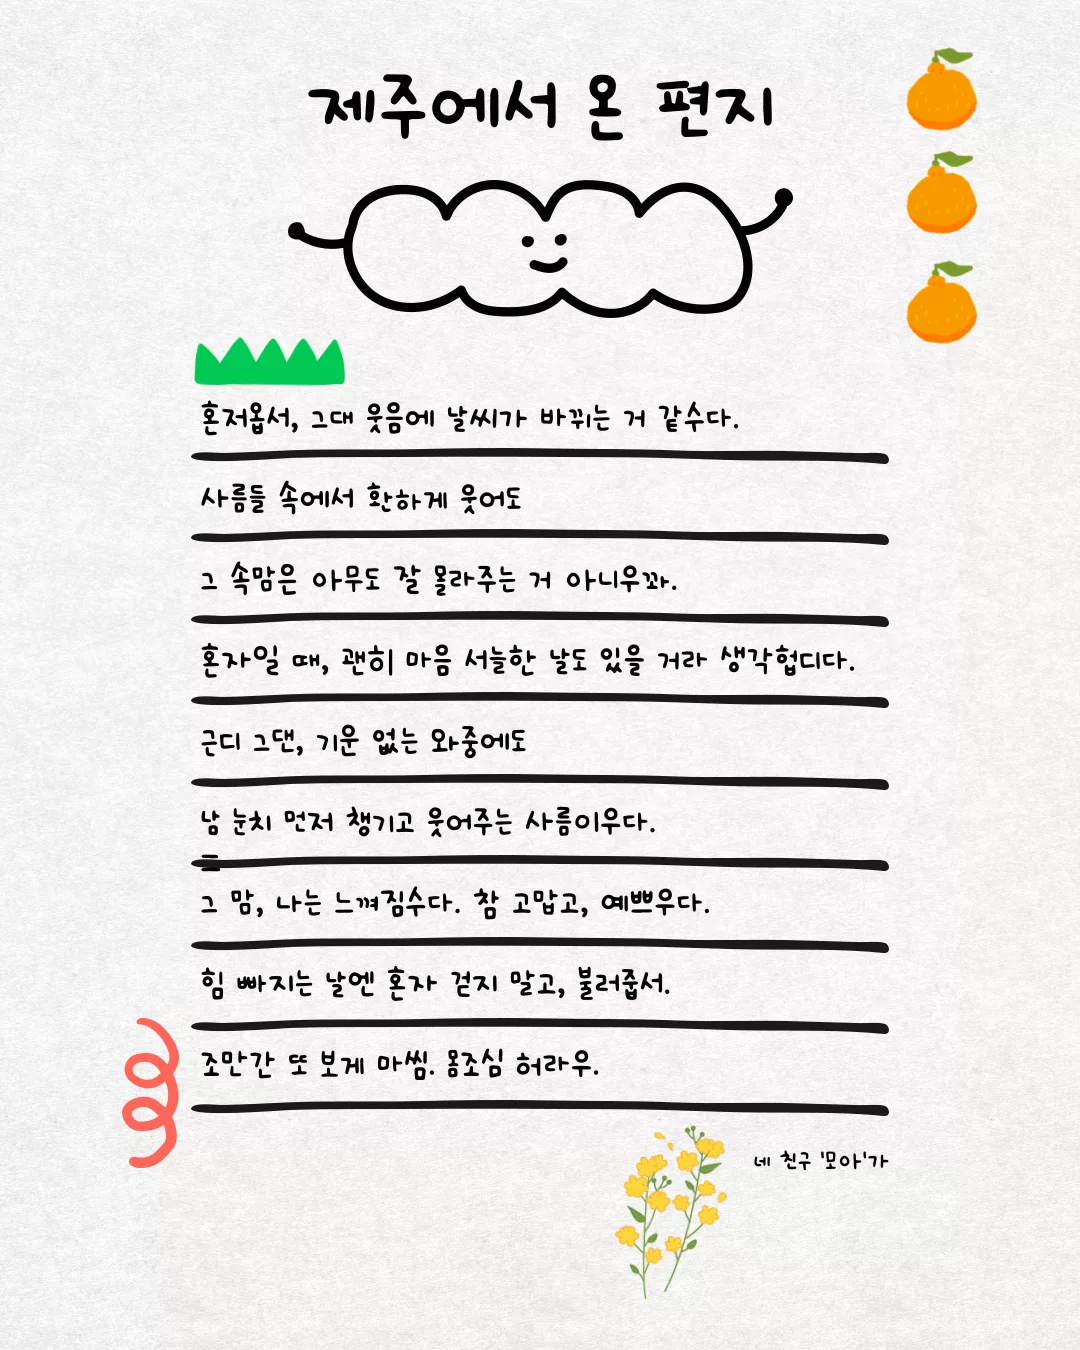 제주에서 온 편지
혼저옵서, 그대 웃음에 날씨가 바뀌는 거 같수다.
사름들 속에서 환하게 웃어도
그 속맘은 아무도 잘 몰라주는 거 아니우꽈.
혼자일 때, 괜히 마음 서늘한 날도 있을 거라 생각헙디다.
근디 그댄, 기운 없는 와중에도
남 눈치 먼저 챙기고 웃어주는 사름이우다.
그 맘, 나는 느껴짐수다. 참 고맙고, 예쁘우다.
힘 빠지는 날엔 혼자 걷지 말고, 불러줍서.
조만간 또 보게 마씸. 몸조심 허라우.
네 친구 '모아'가